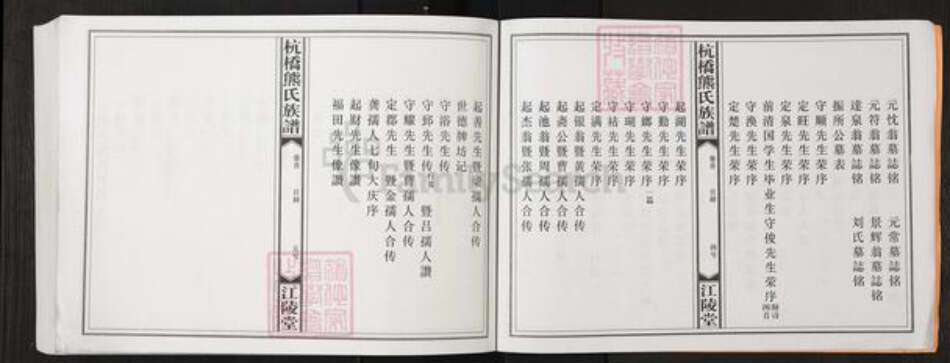 元忱翁墓誌铭　元常墓誌铭
元符翁墓誌铭　景辉翁墓誌铭
逹泉翁墓誌铭　刘氏墓誌铭
振所公墓表
守顺先生荣序
定旺先生荣序
定泉先生荣序
前清国学生毕业生守俊先生荣序
守涣先生荣序
定楚先生荣序
杭橋熊氏族譜
卷首
目錄
江陵堂
起湖先生荣序
守勤先生荣序
守鄉先生荣序二篇
守瑚先生荣序
守祜先生荣序
定满先生荣序
起银翁暨黄孺人合传
起斋公暨曹孺人合传
起池翁暨周孺人合传
起杰翁暨张孺人合传
起善先生暨孺人合传
世德牌坊记
守浴先生传
守邱先生传　暨吕孺人讚
守耀先生暨曹孺人合传
定郡先生暨金孺人合传
龚孺人七旬大庆序
起财先生像讚
福田先生像讚
杭橋熊氏族譜
卷首
目錄
江陵堂
FamilySearch